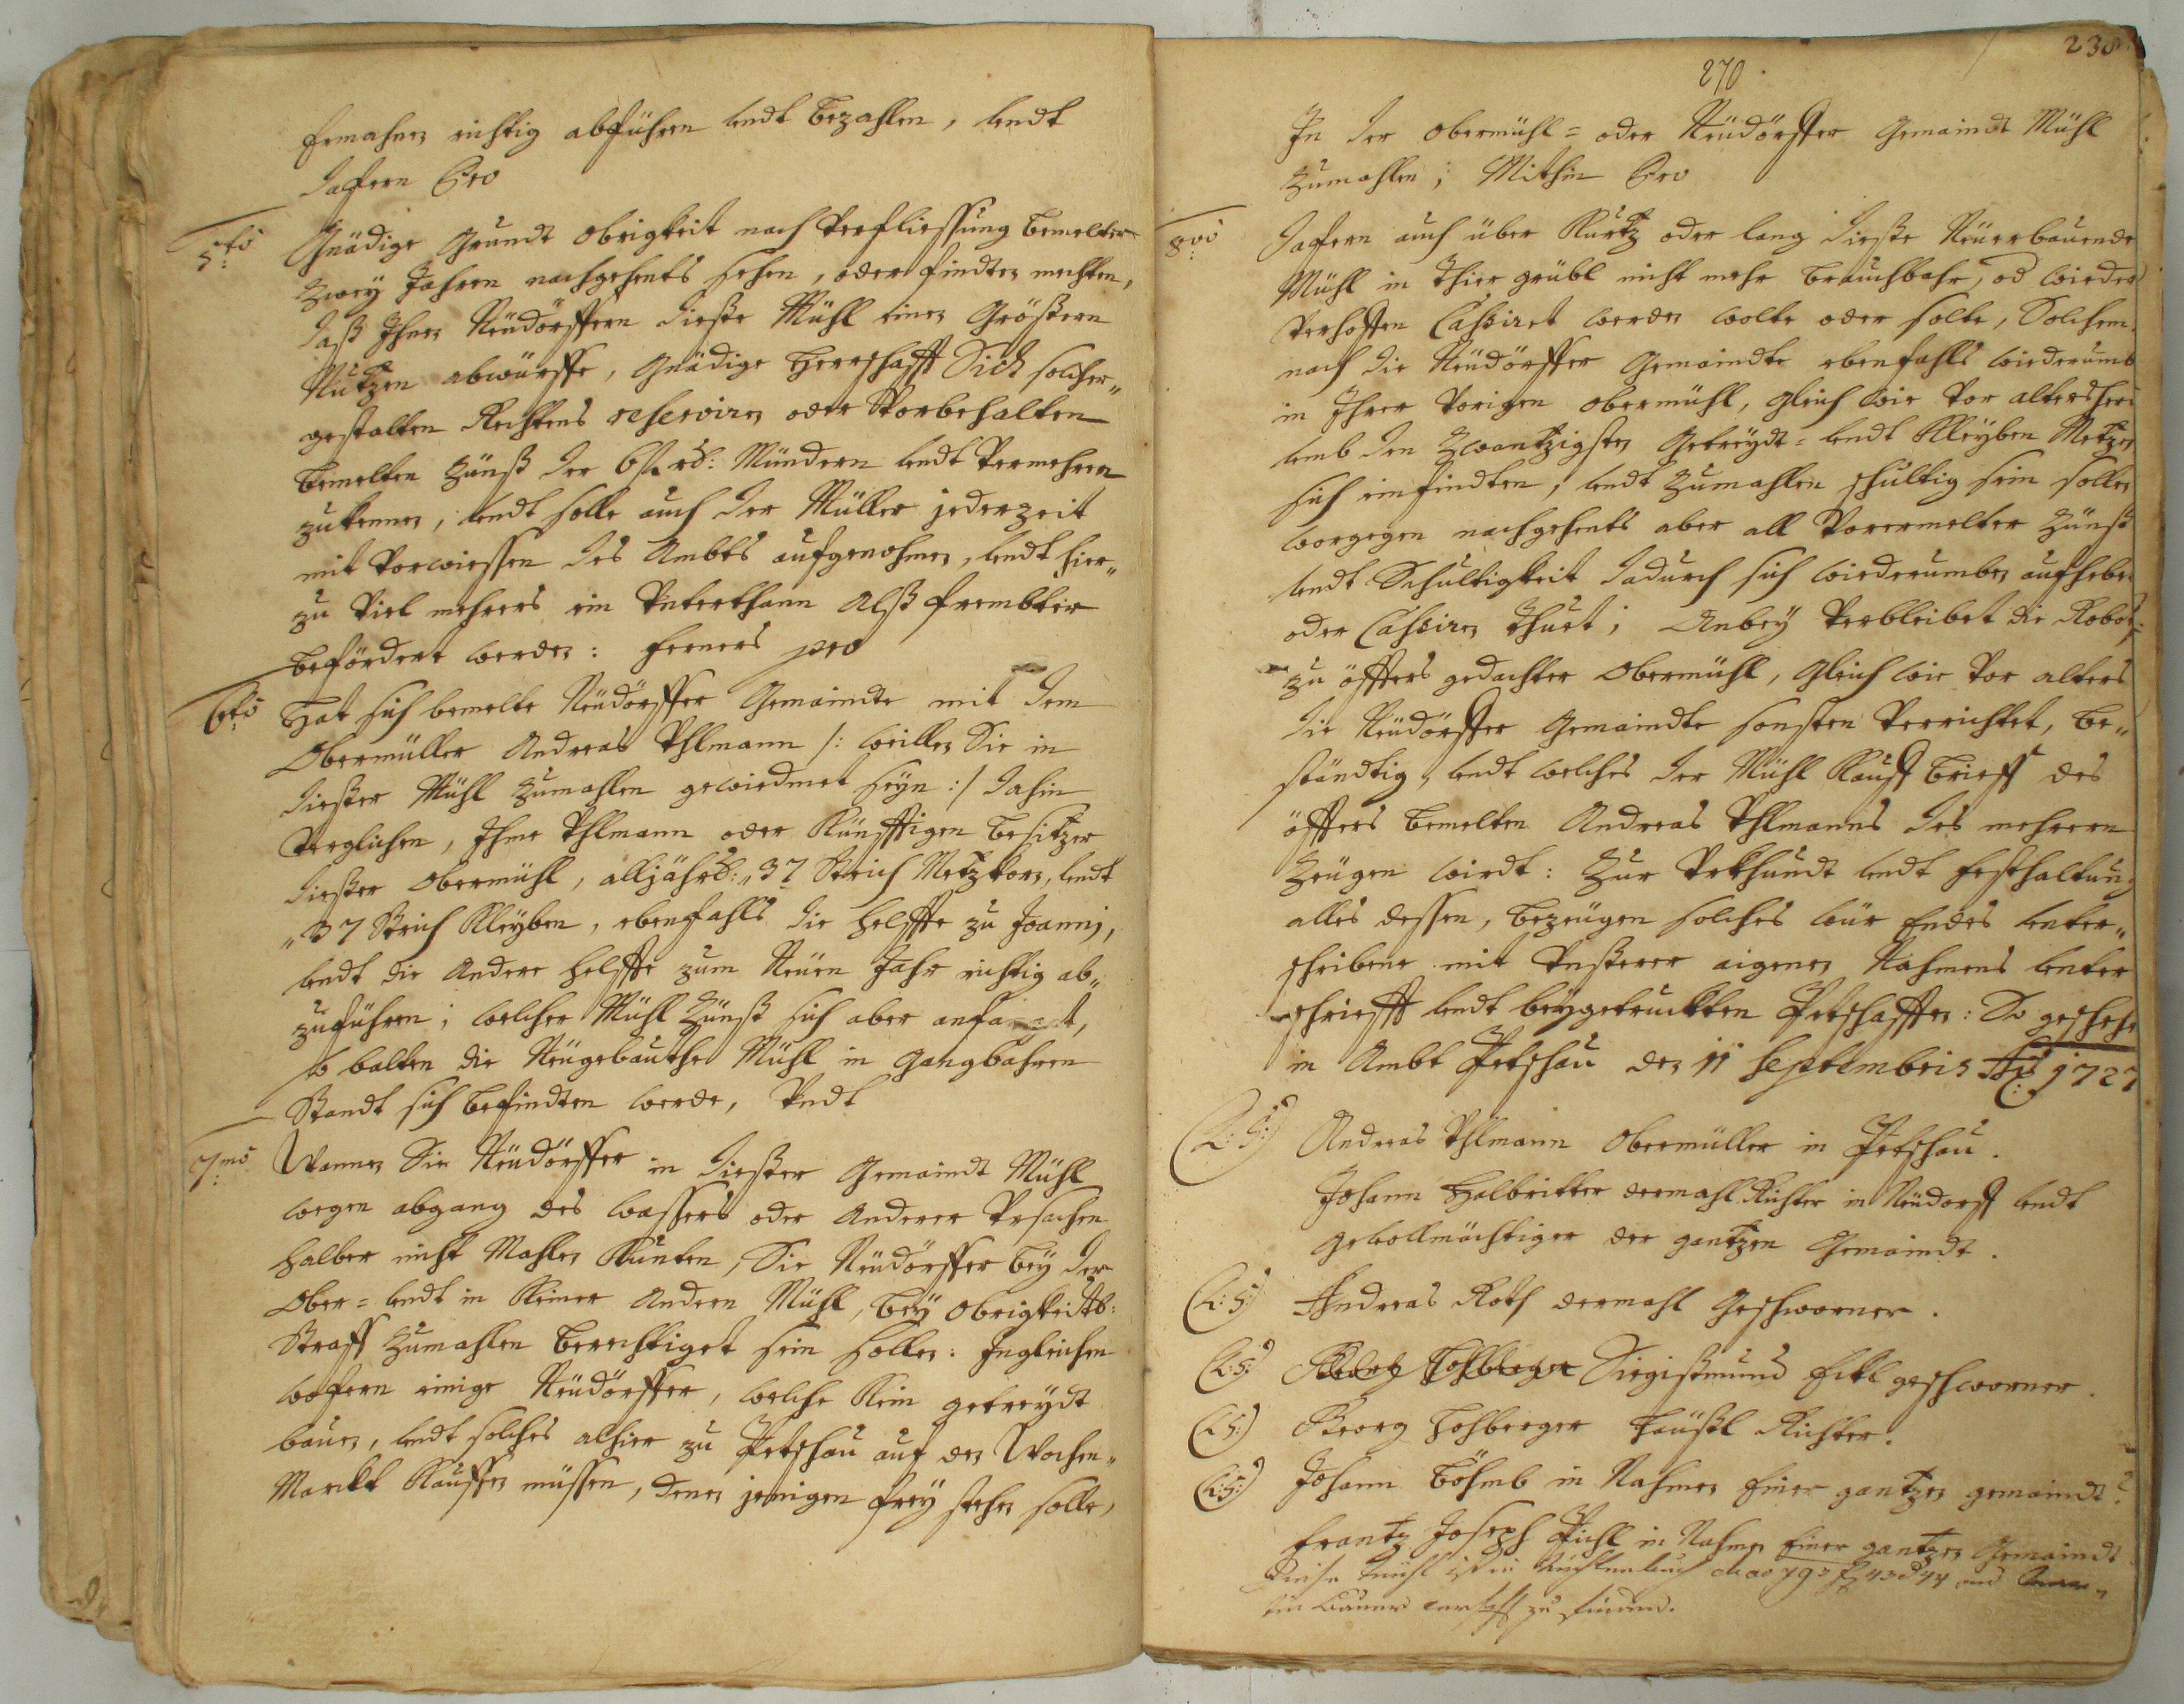 Ermahnen richtig abführen undt bezahlen, undt
dafern Pro
5to Gnädige Grundt Obrigkeit nach Verfliessung bemelter
zwey Jahren nachgehents sehen, oder findten mechten,
daß Ihnen Neudörffern dieße Mühl einen Größern
Nutzen abwürffe, Gnädige Herrschafft Sich solcher„
gestalten Rechtens reserviren oder Vorbehalten
bemelten Zünß der Mündern undt Vermehren
zu kennen, undt solle auch der Müller jederzeit
mit Vorwiessen des Ambts aufgenohmen, undt hier„
zu Viel mehrers ein Unterthann Alß frembter
befördert werden: ferners pro
6to Hat sich bemelte Neudörffer Gemaindte mit dem
Obermüller Andreas Uhlmann /: weillen Sie in
dießer Mühl zumahlen gewiedmet seyn :/ dahin
Verglichen, Ihme Uhlmann oder Künfftigen besitzer
dießer Obermühl, alljährl: „37 Strich Metzkorn, undt
„37 Strich Kleyben, ebenfahls die Helffte zu Joannj,
undt die Andere Helffte zum Neuen Jahr richtig ab„
zuführen; welcher Mühl Zünß sich aber anfanget,
so balten die Neugebauthe Mühl in Gangbahren
Standt sich befindten werde, Undt
7mo Wannen Sie Neudörffer in dießer Gemaindt Mühl
wegen abgang des wassers oder Anderer Ursachen
halber nicht Mahlen Kunten, Sie Neudörffer bey der
Ober= undt in Keiner Andern Mühl, bey Obrigkeitl:
Straff zumahlen berechtiget sein sollen: Ingleichen
wofern einige Neudörffer, welche Kein getreydt
bauen, undt solches alhier zu Petschau auf den Wochen„
Marckt Kauffen müssen, denen jenigen frey stehen solle,
238
270
In der Obermühl= oder Neudörffer Gemaindt Mühl
zumahlen; Mithin Pro
8vo Dafern auch über Kurtz oder lang dieße Neuerbauende
Mühl in Thiergrübl nicht mehr brauchbahr, od wieder
Verhoffen Cassiret werden wolte oder solte, Solchem
nach die Neudörffer Gemaindte ebenfahls wiederumb
in Ihrer Vorigen Obermühl, gleich wie Vor altershero
umb den Zwantzigsten Getreydt= undt Kleyben Metzen
sich einfindten, undt zumahlen schultig sein sollen
worgegen nachgehents aber all Vorermelter Zünß
undt Schultigkeit dadurch sich wiederumben aufheben
oder Cassiren thuet; Anbey Verbleibet die Robot=
zu öffters gedachter Obermühl, Gleich wie Vor alters
die Neudörffer Gemaindte sonsten Verrichtet, be„
ständtig, undt welches der Mühl Kauff brieff des
öffters bemelten Andreas Uhlmanns des mehrern
Zeugen wirdt: Zur Urkhundt undt Festhaltung
alles dessen, bezeugen solches wür Endes unter„
schribene mit Unßerer aigenen Nahmens Unter
schriefft undt beygetruckten Petschafften: So geschehen
in Ambt Petschau den 11 Septembris Ao 1727
(L: S:) Andreas Uhlmann Obermüller in Petschau.
Johann Halbritter dermahl Richter in Neudorff undt
gevollmächtiger der gantzen Gemaindt.
(L: S:) Andreas Roth dermahl Geschworner.
(L: S:) Siegißmund Eckl geschworner.
(L S:) Georg Hochberger Häußl Richter.
(L: S:) Johann Böhmb in Nahmen Einer gantzen gemaindt.
Frantz Joseph Pichl in Nahmen Einer gantzen Gemaindt
Diese Mühl ist in
zu finden.